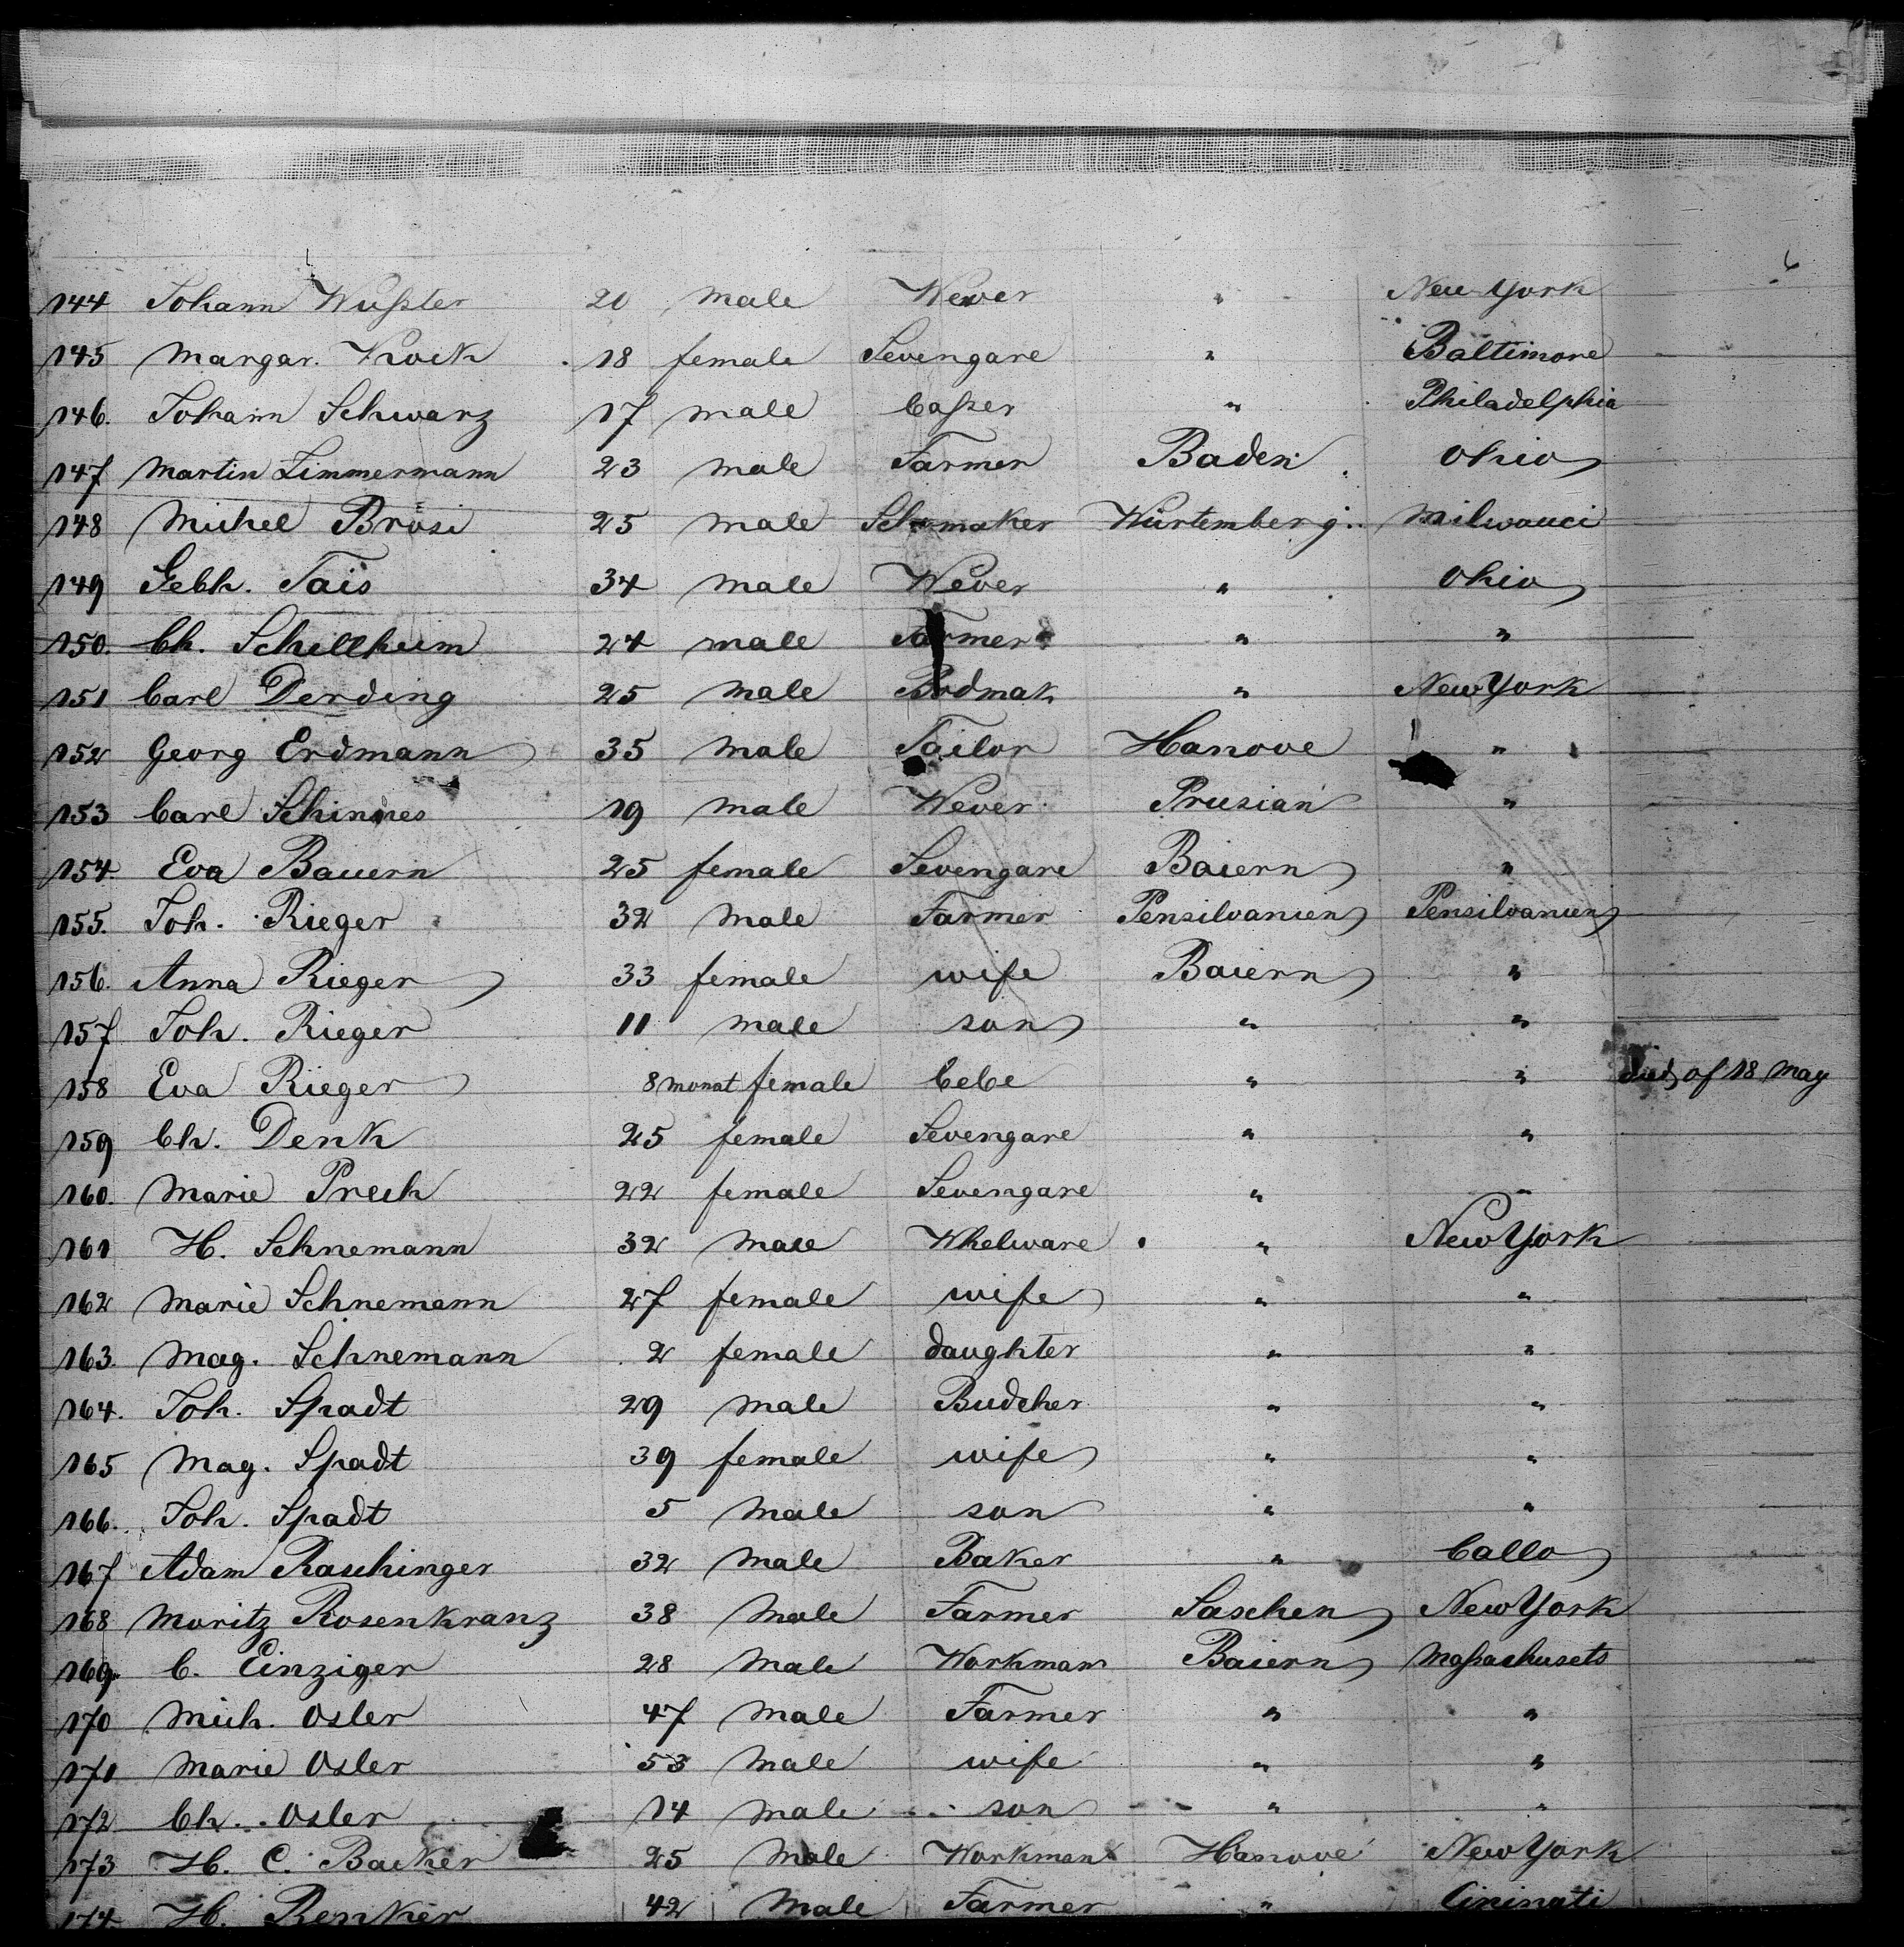 144 Johann Wußter 20 male Wever " New York
145 Margar. Kock 18 female Sevengare " Baltimore
146. Johann Schwarz 17 male Casser " Philadelphia
147 Martin Zimmermann 23 male Farmer Baden Ohio
148 Michel Brösi 25 male Schomaker Würtemberg Milwauci
149 Gebh. Tais 34 male Wever " Ohio
150. Ch. Schillheim 24 male Farmer " "
151 Carl Derding 25 male Bodmak " New York
152 Georg Erdmann 35 male Tailor Hanove "
153 Carl Schinnes 19 male Wever Prusian "
154. Eva Bauern 25 female Sevengare Baiern "
155. Joh. Rieger 32 male Farmer Pensilvanien Pensilvanien
156. Anna Rieger 33 female wife Baiern "
157 Joh. Rieger 11 male son " "
158 Eva Rieger 8 monat female bebe " " died of 18 May
159 Ch. Denk 25 female Sevengare " "
160. Marie Prech 22 female Sevengare " "
161 H. Schnemann 32 male Whelware " New York
162 Marie Schnemann 27 female wife " "
163. Mag. Schnemann 2 female daughter " "
164. Joh. Spadt 29 male Budcher " "
165 Mag. Spadt 39 female wife " "
166. Joh. Spadt 5 male son " "
167 Adam Raschinger 32 male Baker " Callo
168 Moritz Rosenkranz 38 male Farmer Saschen New York
169. C. Einziger 28 male Workman Baiern Maßachusets
170 Mich. Osler 47 male Farmer " "
171 Marie Osler 53 male wife " "
172 Ch. Osler 14 male son " "
173 H. C. Backer 25 male Workman Hanove New York
174 H. Renker 42 male Farmer " Cininati